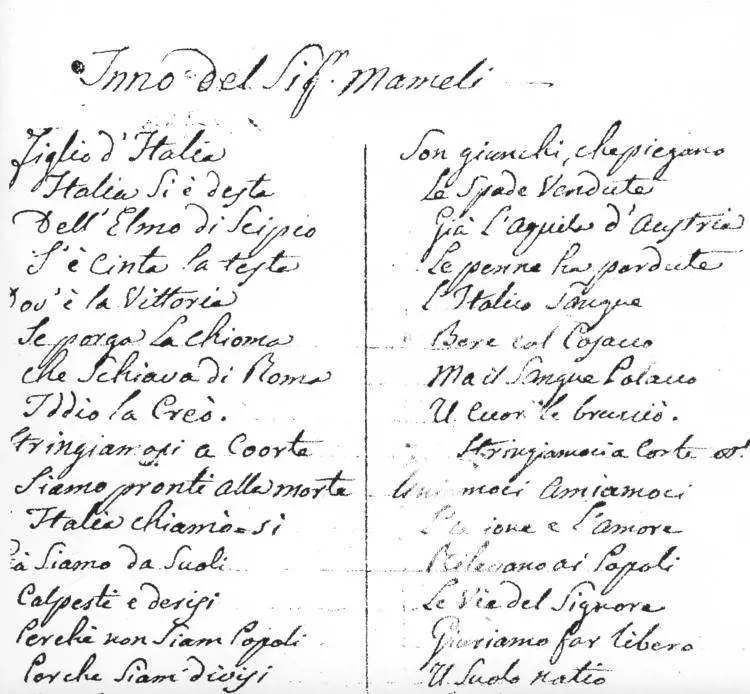 Inno del Sig.r Mameli
Figlio d'Italia
Italia Si è desta
Dell'Elmo di Scipio
S'è Cinta la testa
Dov'è la Vittoria
Se porga La chioma
che Schiava di Roma
Iddio la Creò.
Stringiamoci a Coorte
Siamo pronti alla morte
Italia chiamò=si
Già Siamo da Suoli
Calpesti e derisi
Perchè non Siam Popoli
Perche Siam divisi
Son giunchi, che piegano
Le Spade Vendute
Già L'Aquila d'Austria
Le penne ha perdute
l'Italico Sangue
Bere col Cosacco
Ma il Sangue Polacco
Il Cuor le bruciò.
Stringiamoci a Corte
Uniamoci Amiamoci
L'unione e L'amore
Rilevano ai Popoli
Le Vie del Signore
Giuriamo far libero
Il Suolo natio